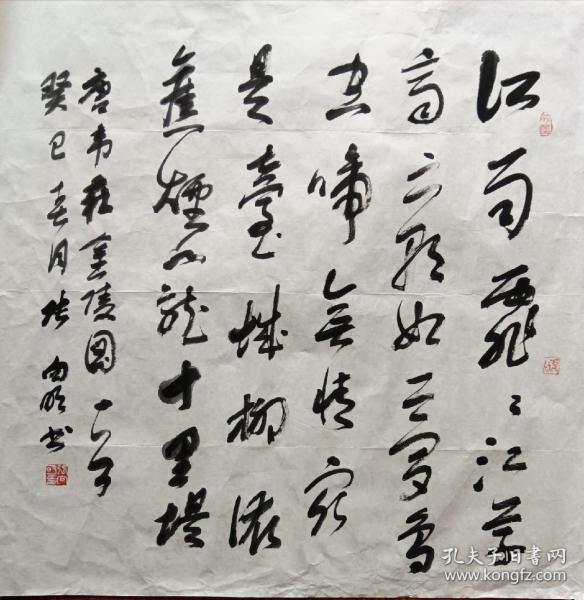 江雨霏〻江草
齊六朝如夢鸟
空啼無情最
是臺城柳依
舊煙籠十里堤
唐韦莊金陵圖一首
癸巳春月张向明书
孔夫子旧书网
www.kongfz.com